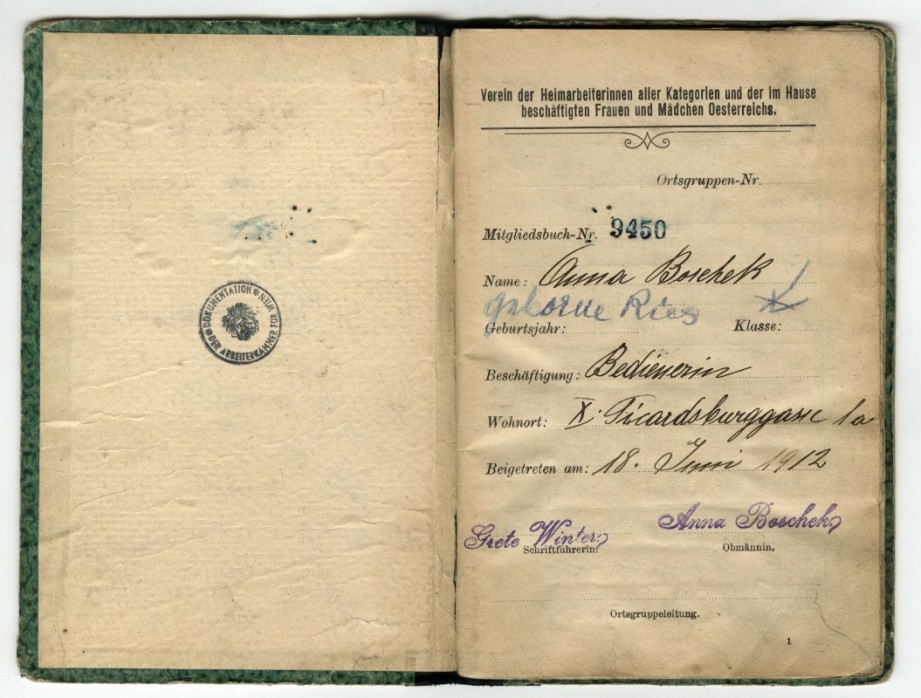 DOKUMENTATION * DER ARBEITERKAMMER FÜR WIEN *
Verein der Heimarbeiterinnen aller Kategorien und der im Hause
beschäftigten Frauen und Mädchen Oesterreichs.
Ortsgruppen-Nr.
Mitgliedsbuch-Nr. 9450
Name: Anna Boschek
geborne Ries
Geburtsjahr: Klasse:
Beschäftigung: Bedienerin
Wohnort: X. 1a
Beigetreten am: 18. Juni 1912
Grete Winter Anna Boschek
Schriftführerin. Obmännin.
Ortsgruppeleitung.
1